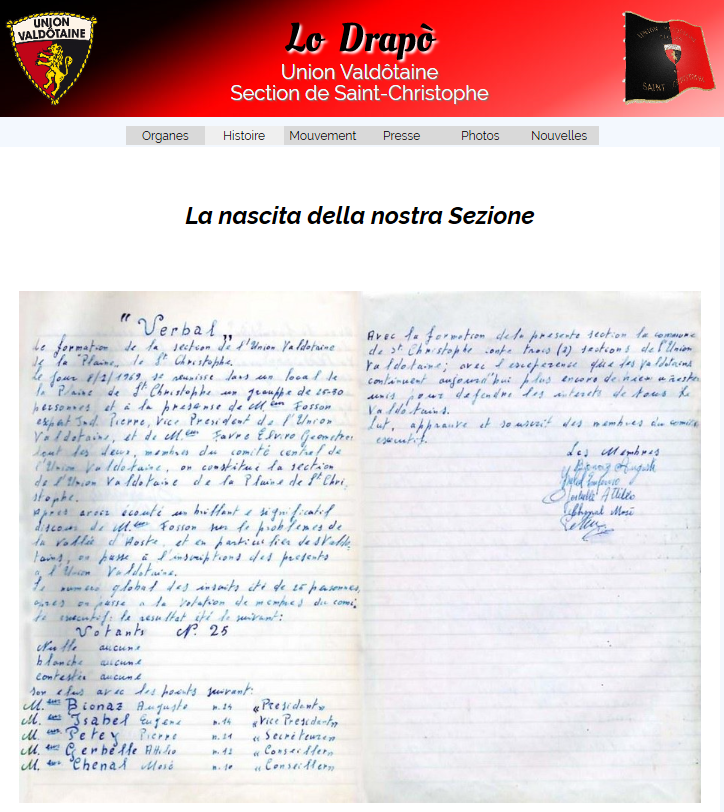 UNION
VALDÔTAINE
Lo Drapò
Union Valdôtaine
Section de Saint-Christophe
UNION VALDÔTAINE
SAINT
Organes
Histoire
Mouvement
Presse
Photos
Nouvelles
La nascita della nostra Sezione
"Verbal"
La formation de la section de l'Union Valdotaine
de la "Plaine" de St Christophe.
Le jour 8/2/1969 se reunisse dans un local de
la Plaine de St Christophe un grouppe de 25-30
personnes et à la presense de M.eur Fosson
expert Ind. Pierre, Vice President de l'Union
Valdotaine, et de M.eur Favre Elviro Geometre
tout les deux, membres du comité central de
l'Union Valdotaine, on constitui la section
de l'Union Valdotaine de la Plaine de St Chri-
stophe.
Apres avoir écouté un brillant e significatif
discour de M.eur Fosson sur le problemes de
la Vallée d'Aoste, et en particulier des Valdo-
tains, on passe à l'inscriptions des presents
a l'Union Valdotaine.
Le numero global des inscrits été de 25 personnes,
apres on passe a la votation de membres du comi-
té executif: le resultat été le suivant:
Votants N. 25
Nulle aucune
blanche aucune
contestée aucune
son elus avec les points suivant:
M.eur Bionaz Auguste n. 24 "President"
M.eur Isabel Eugene n. 14 "Vice President"
M.eur Petey Pierre n. 21 "Secreteure"
M.eur Gerbelle Attilio n. 12 "Conseiller"
M.eur Chenal Mosè n. 10 "Conseiller"
Avec la formation de la presente section la commune
de St Christophe conte trois (3) sections de l'Union
Valdotaine; avec l'esperence que les Valdotains
continuent aujourd'hui plus encore de hier a rester
unis pour defendre les interets de tous le
Valdotains.
Lut, approuve et souscrit des membres du comité
executif.
Les Membres
Bionaz Auguste
Gerbelle Attilio
Chenal Mosè